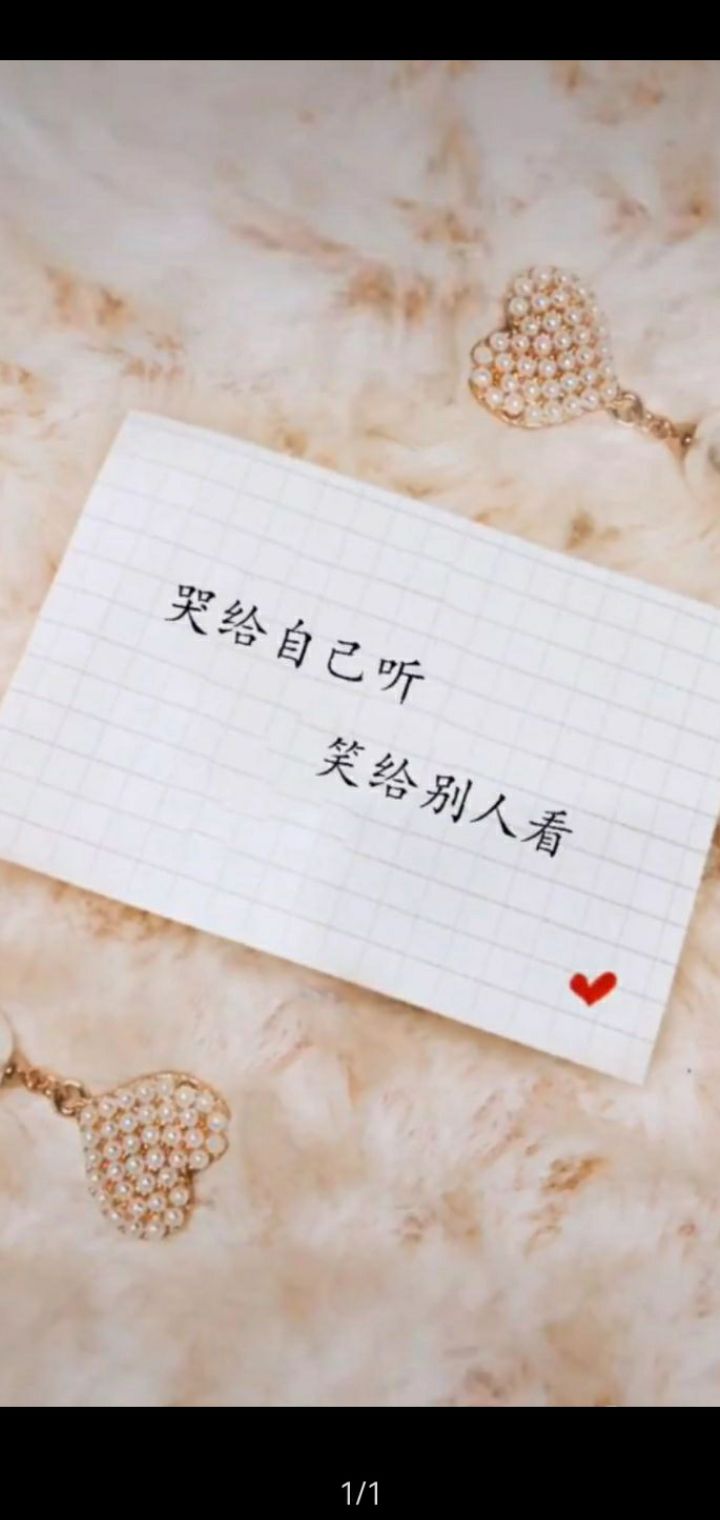 哭给自己听
笑给别人看
1/1